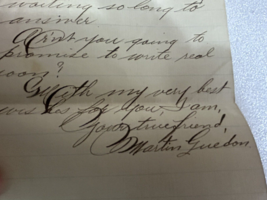 waiting so long to
answer
Aren't you going to
promise to write real
soon?
With my very best
wishes for you, I am,
Your true friend,
Martin